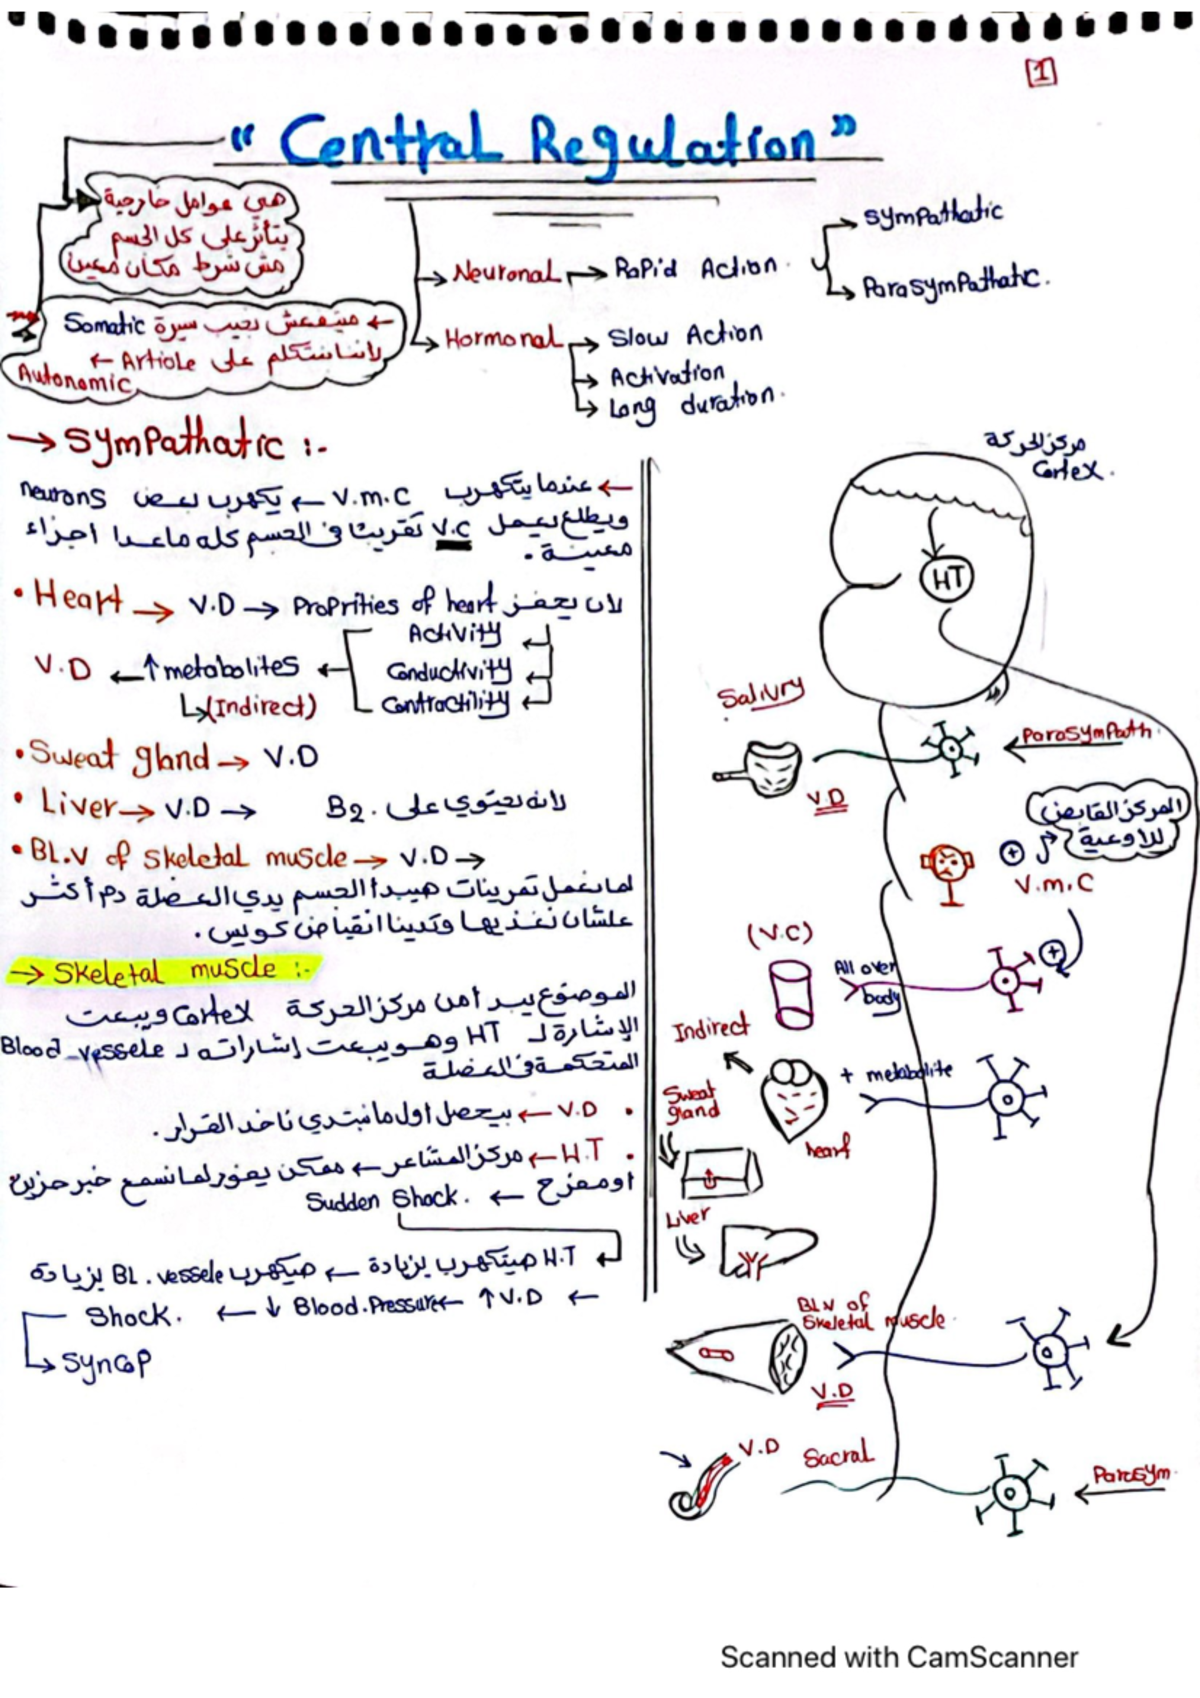 1
" Central Regulation "
هي عوامل خارجية
بتأثر على كل الجسم
مش شرط مكان معين
Somatic مينفعش نجيب سيرة ←
لأننا بنتكلم على Artiole ←
Autonomic
→ Neuronal → Rapid Action.
→ Sympathatic
→ Parasympathatic.
→ Hormonal → Slow Action
→ Activation
→ Long duration.
→ Sympathatic :-
← عندما يتكهرب V.m.C ← يكهرب بعض neurons
ويطلع يعمل V.C تقريبًا في الجسم كله ماعدا اجزاء
معينة.
• Heart → V.D → Proprities of heart لان يحفز
Activity
Conductivity
Contractility
V.D ← ↑metabolites ←
↳(Indirect)
• Sweat gland → V.D
• Liver → V.D → لانه يحتوي على B2.
• BL.V of Skeletal muscle → V.D →
لما بنعمل تمرينات هيبدأ الجسم يدي العضلة دم أكثر
علشان نغذيها وتدينا انقباض كويس.
→ Skeletal muscle :-
الموضوع يبدا من مركز الحركة Cortex ويبعت
الإشارة لـ HT وهو يبعت إشاراته لـ Blood_vessele
المتحكمة في العضلة
• V.D ← بيحصل اول ما نبتدي ناخد القرار.
• H.T ← مركز المشاعر ← ممكن يفور لما نسمع خبر حزين
او مفرح ← Sudden Shock.
H.T هيتكهرب بزيادة ← هيكهرب BL. vessele بزيادة
← ↑V.D ← ↓ Blood.Pressure ← Shock.
↳ Syncop
مركز الحركة
Cortex.
HT
Salivry
V.D
← Parasympath.
المركز القابض
للاوعية
+
V.m.C
(V.C)
All over
body
+
Indirect
+ metabolite
heart
Sweat
gland
Liver
BL.V of
Skeletal muscle.
V.D
V.D
Sacral
← Parasym.
Scanned with CamScanner